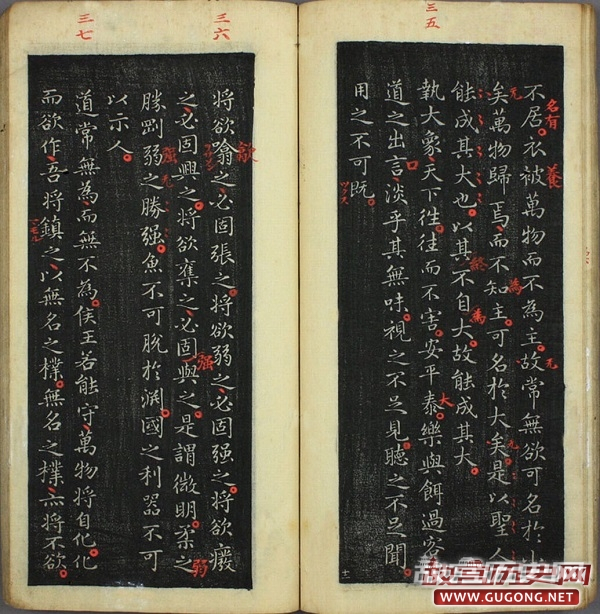 三五
名有
不居衣被萬物而不為主故常無欲可名於小
矣萬物歸焉而不知主可名於大矣是以聖人
能成其大也以其不自大故能成其大
執大象天下往往而不害安平泰樂與餌過客
道之出言淡乎其無味視之不足見聽之不足聞
用之不可既
三六
歙
將欲噏之必固張之將欲弱之必固强之將欲廢
之必固興之將欲奪之必固與之是謂微明柔之
勝剛弱之勝强魚不可脫於渊國之利器不可
以示人
三七
道常無為而無不為侯王若能守萬物將自化化
而欲作吾將鎮之以無名之樸無名之樸亦將不欲
养
為
終
為
大
口
强
强
弱
十一
故宫历史网
WWW.GUGONG.NET